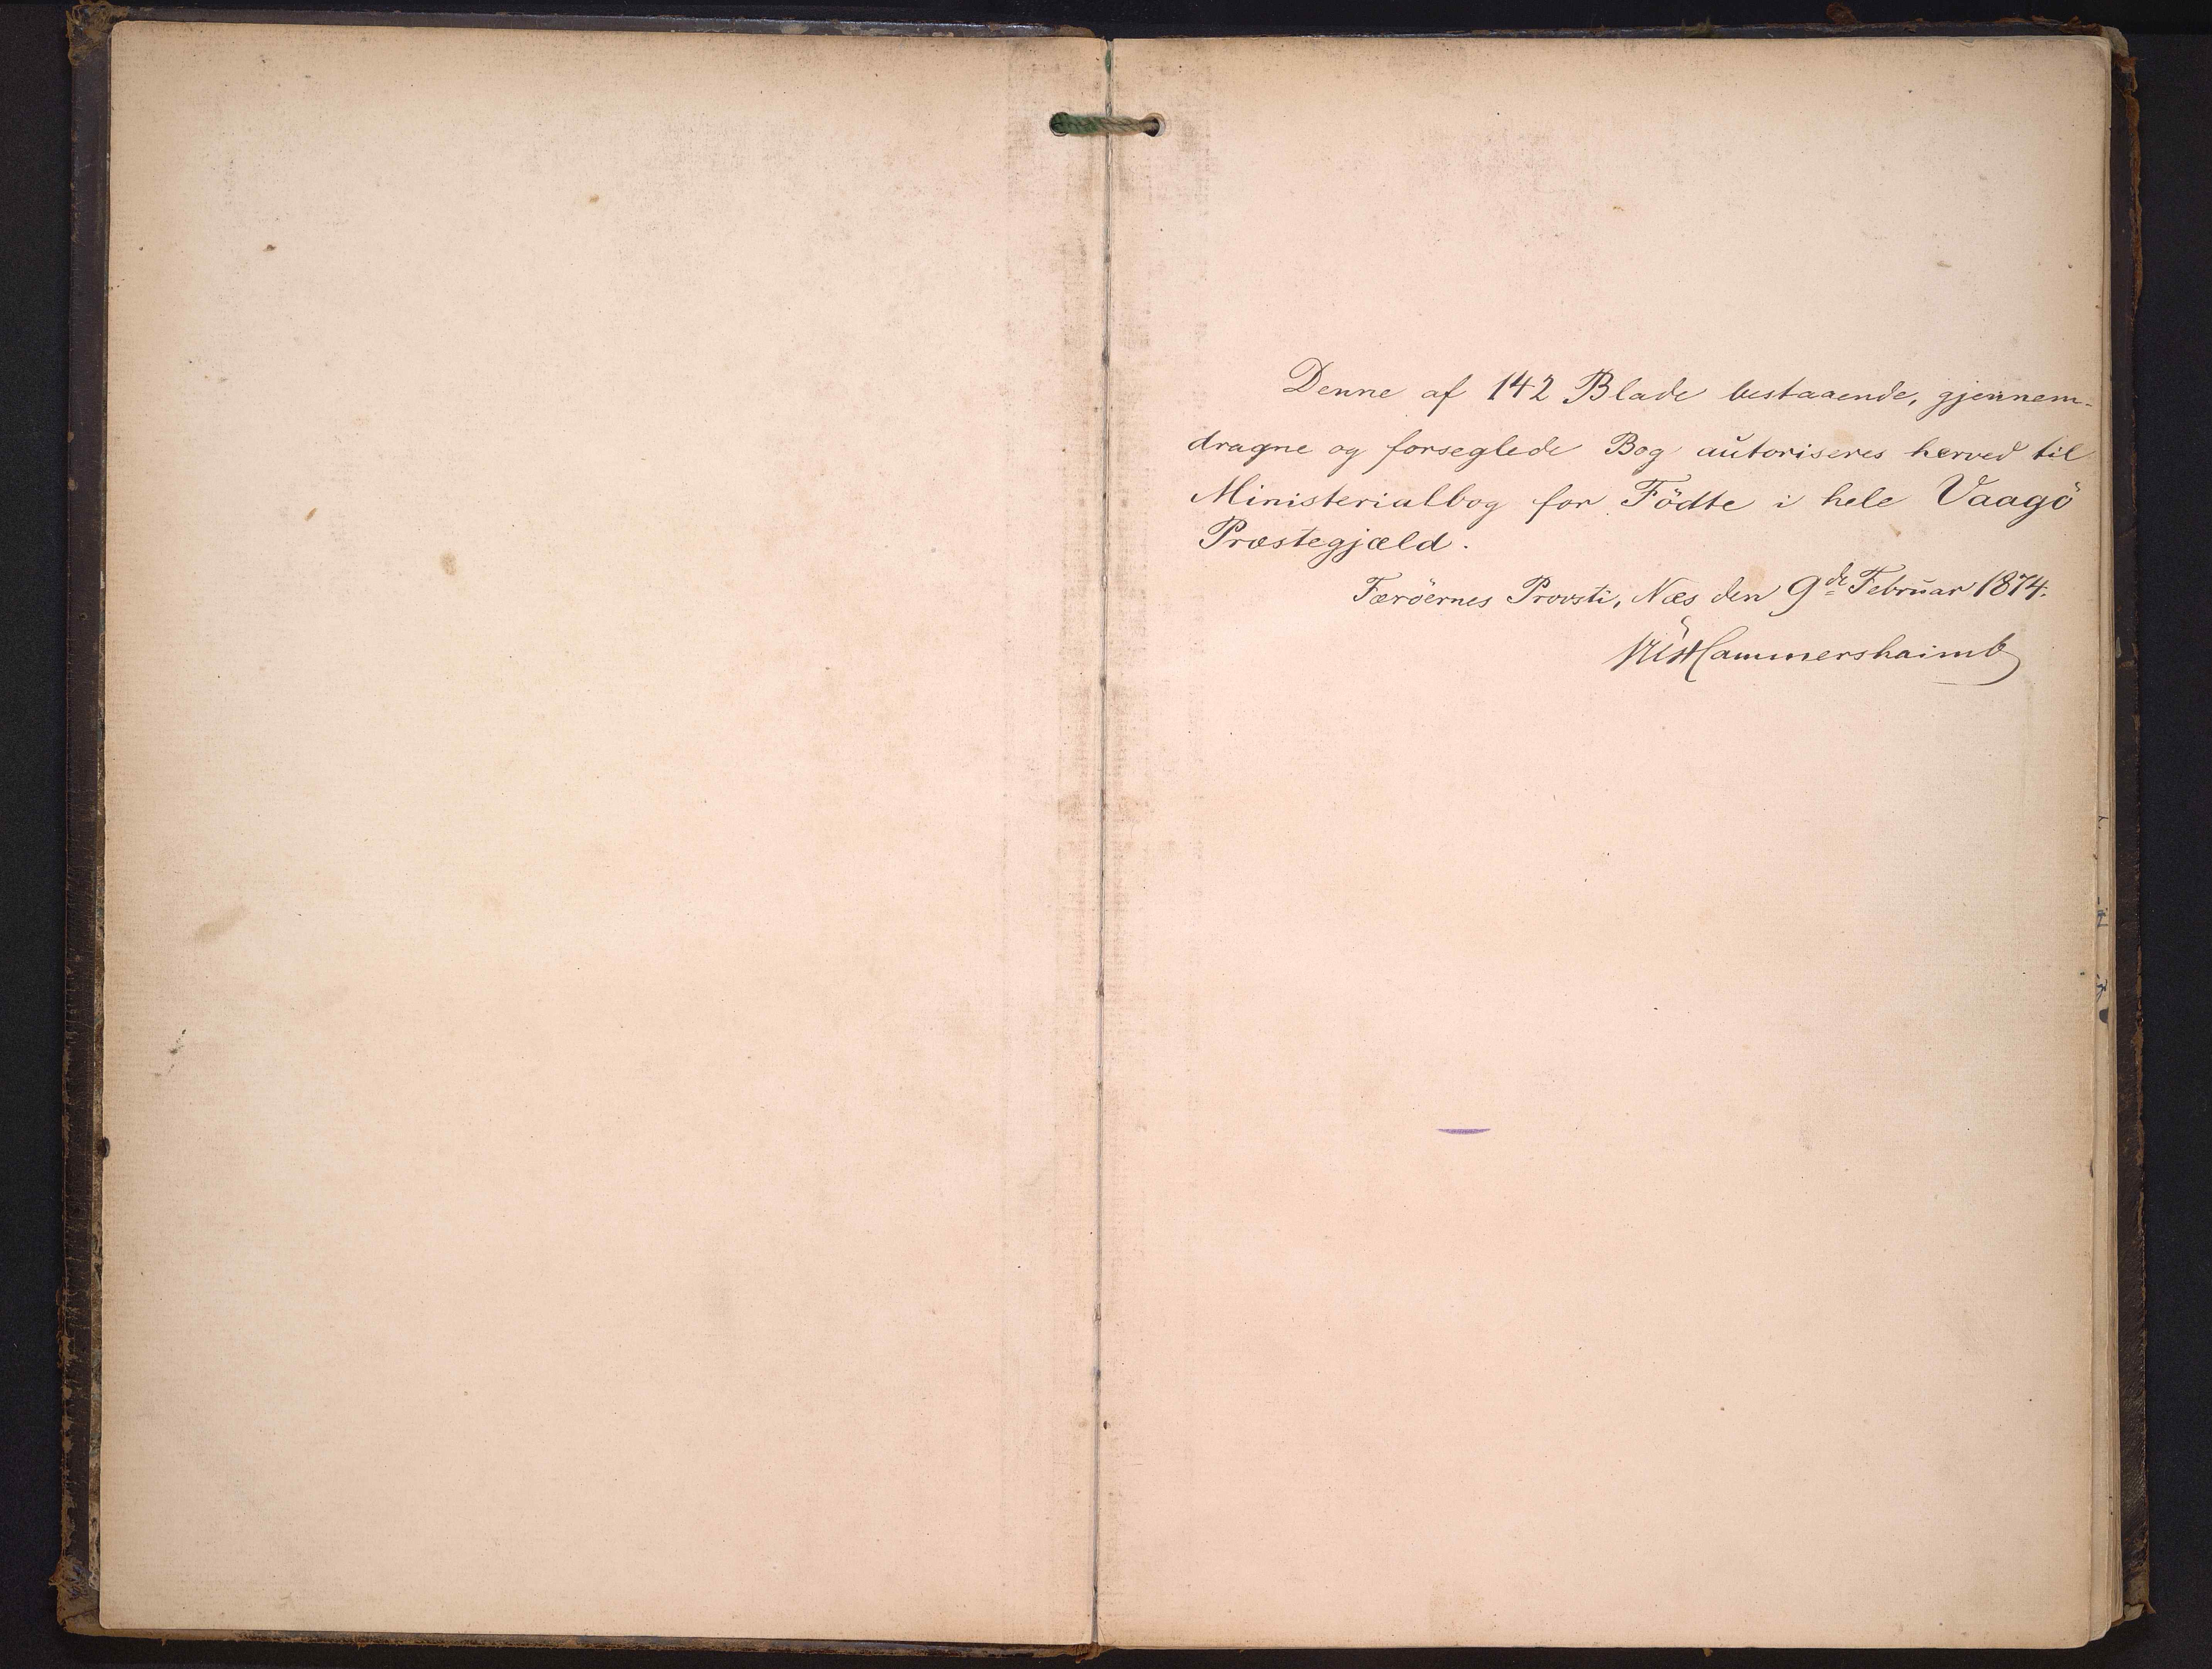 Denne af 142 Blade bestaaende, gjennem-
dragne og forseglede Bog autoriseres herved til
Ministerialbog for Födte i hele Vaagö
Præstegjæld.
Færöernes Provsti, Næs den 9de Februar 1874.
VUHammershaimb